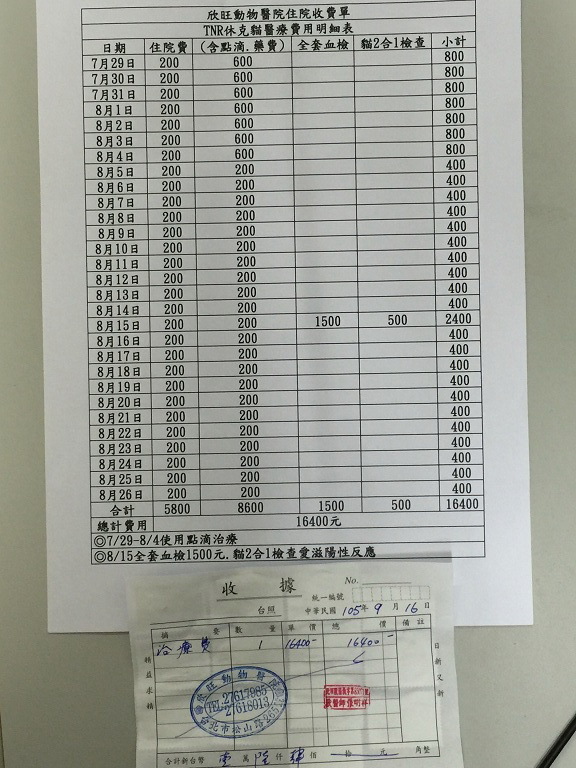 欣旺動物醫院住院收費單
TNR休克貓醫療費用明細表
日期 住院費 (含點滴.藥費) 全套血檢 貓2合1檢查 小計
7月29日 200 600 800
7月30日 200 600 800
7月31日 200 600 800
8月1日 200 600 800
8月2日 200 600 800
8月3日 200 600 800
8月4日 200 600 800
8月5日 200 200 400
8月6日 200 200 400
8月7日 200 200 400
8月8日 200 200 400
8月9日 200 200 400
8月10日 200 200 400
8月11日 200 200 400
8月12日 200 200 400
8月13日 200 200 400
8月14日 200 200 400
8月15日 200 200 1500 500 2400
8月16日 200 200 400
8月17日 200 200 400
8月18日 200 200 400
8月19日 200 200 400
8月20日 200 200 400
8月21日 200 200 400
8月22日 200 200 400
8月23日 200 200 400
8月24日 200 200 400
8月25日 200 200 400
8月26日 200 200 400
合計 5800 8600 1500 500 16400
總計費用 16400元
◎7/29-8/4使用點滴治療
◎8/15全套血檢1500元.貓2合1檢查愛滋陽性反應
收據 No.
統一編號
台照 中華民國105年9月16日
摘要 數量 單價 總價 備註
治療費 1 16400- 16400-
精益求精
日新又新
欣旺動物醫院
TEL:27617985
27618013
台北市松山路
合計新台幣壹萬陸仟肆佰拾元角整